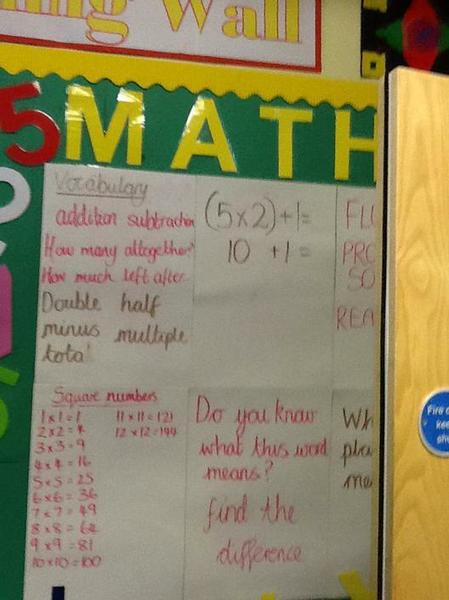 ing Wall
5 MATH
Vocabulary
addition subtraction
How many altogether?
How much left after
Double half
minus multiple
total
(5x2)+1=
10 +1=
FL
PRO
SO
REA
Square numbers
1x1=1
2x2=4
3x3=9
4x4=16
5x5=25
6x6=36
7x7=49
8x8=64
9x9=81
10x10=100
11x11=121
12x12=144
Do you know
what this word
means?
find the
difference
Wh
pla
me
Fire
kee
sh